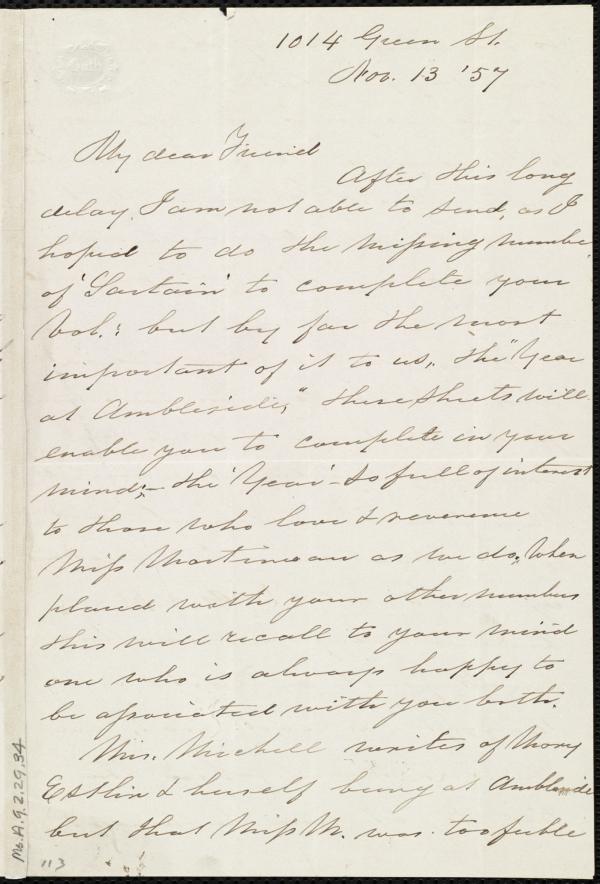 1014 Green St.
Nov. 13 '57
My dear Friend
After this long
delay, I am not able to send, as I
hoped to do the missing numbe
of 'Sartain' to complete your
Vol.: but by far the most
important of it to us, the "Year
at Ambleside," these sheets will
enable you to complete in your
mind;— the 'Year' – so full of interest
to those who love & reverence
Miss Martineau as we do. When
placed with your other numbers
this will recall to your mind
one who is always happy to
be associated with you both.
Mrs. Michell writes of Mary
Estlin & herself being at Ambleside
but that Miss M. was too feeble
Ms.A.9.2.29.34
113